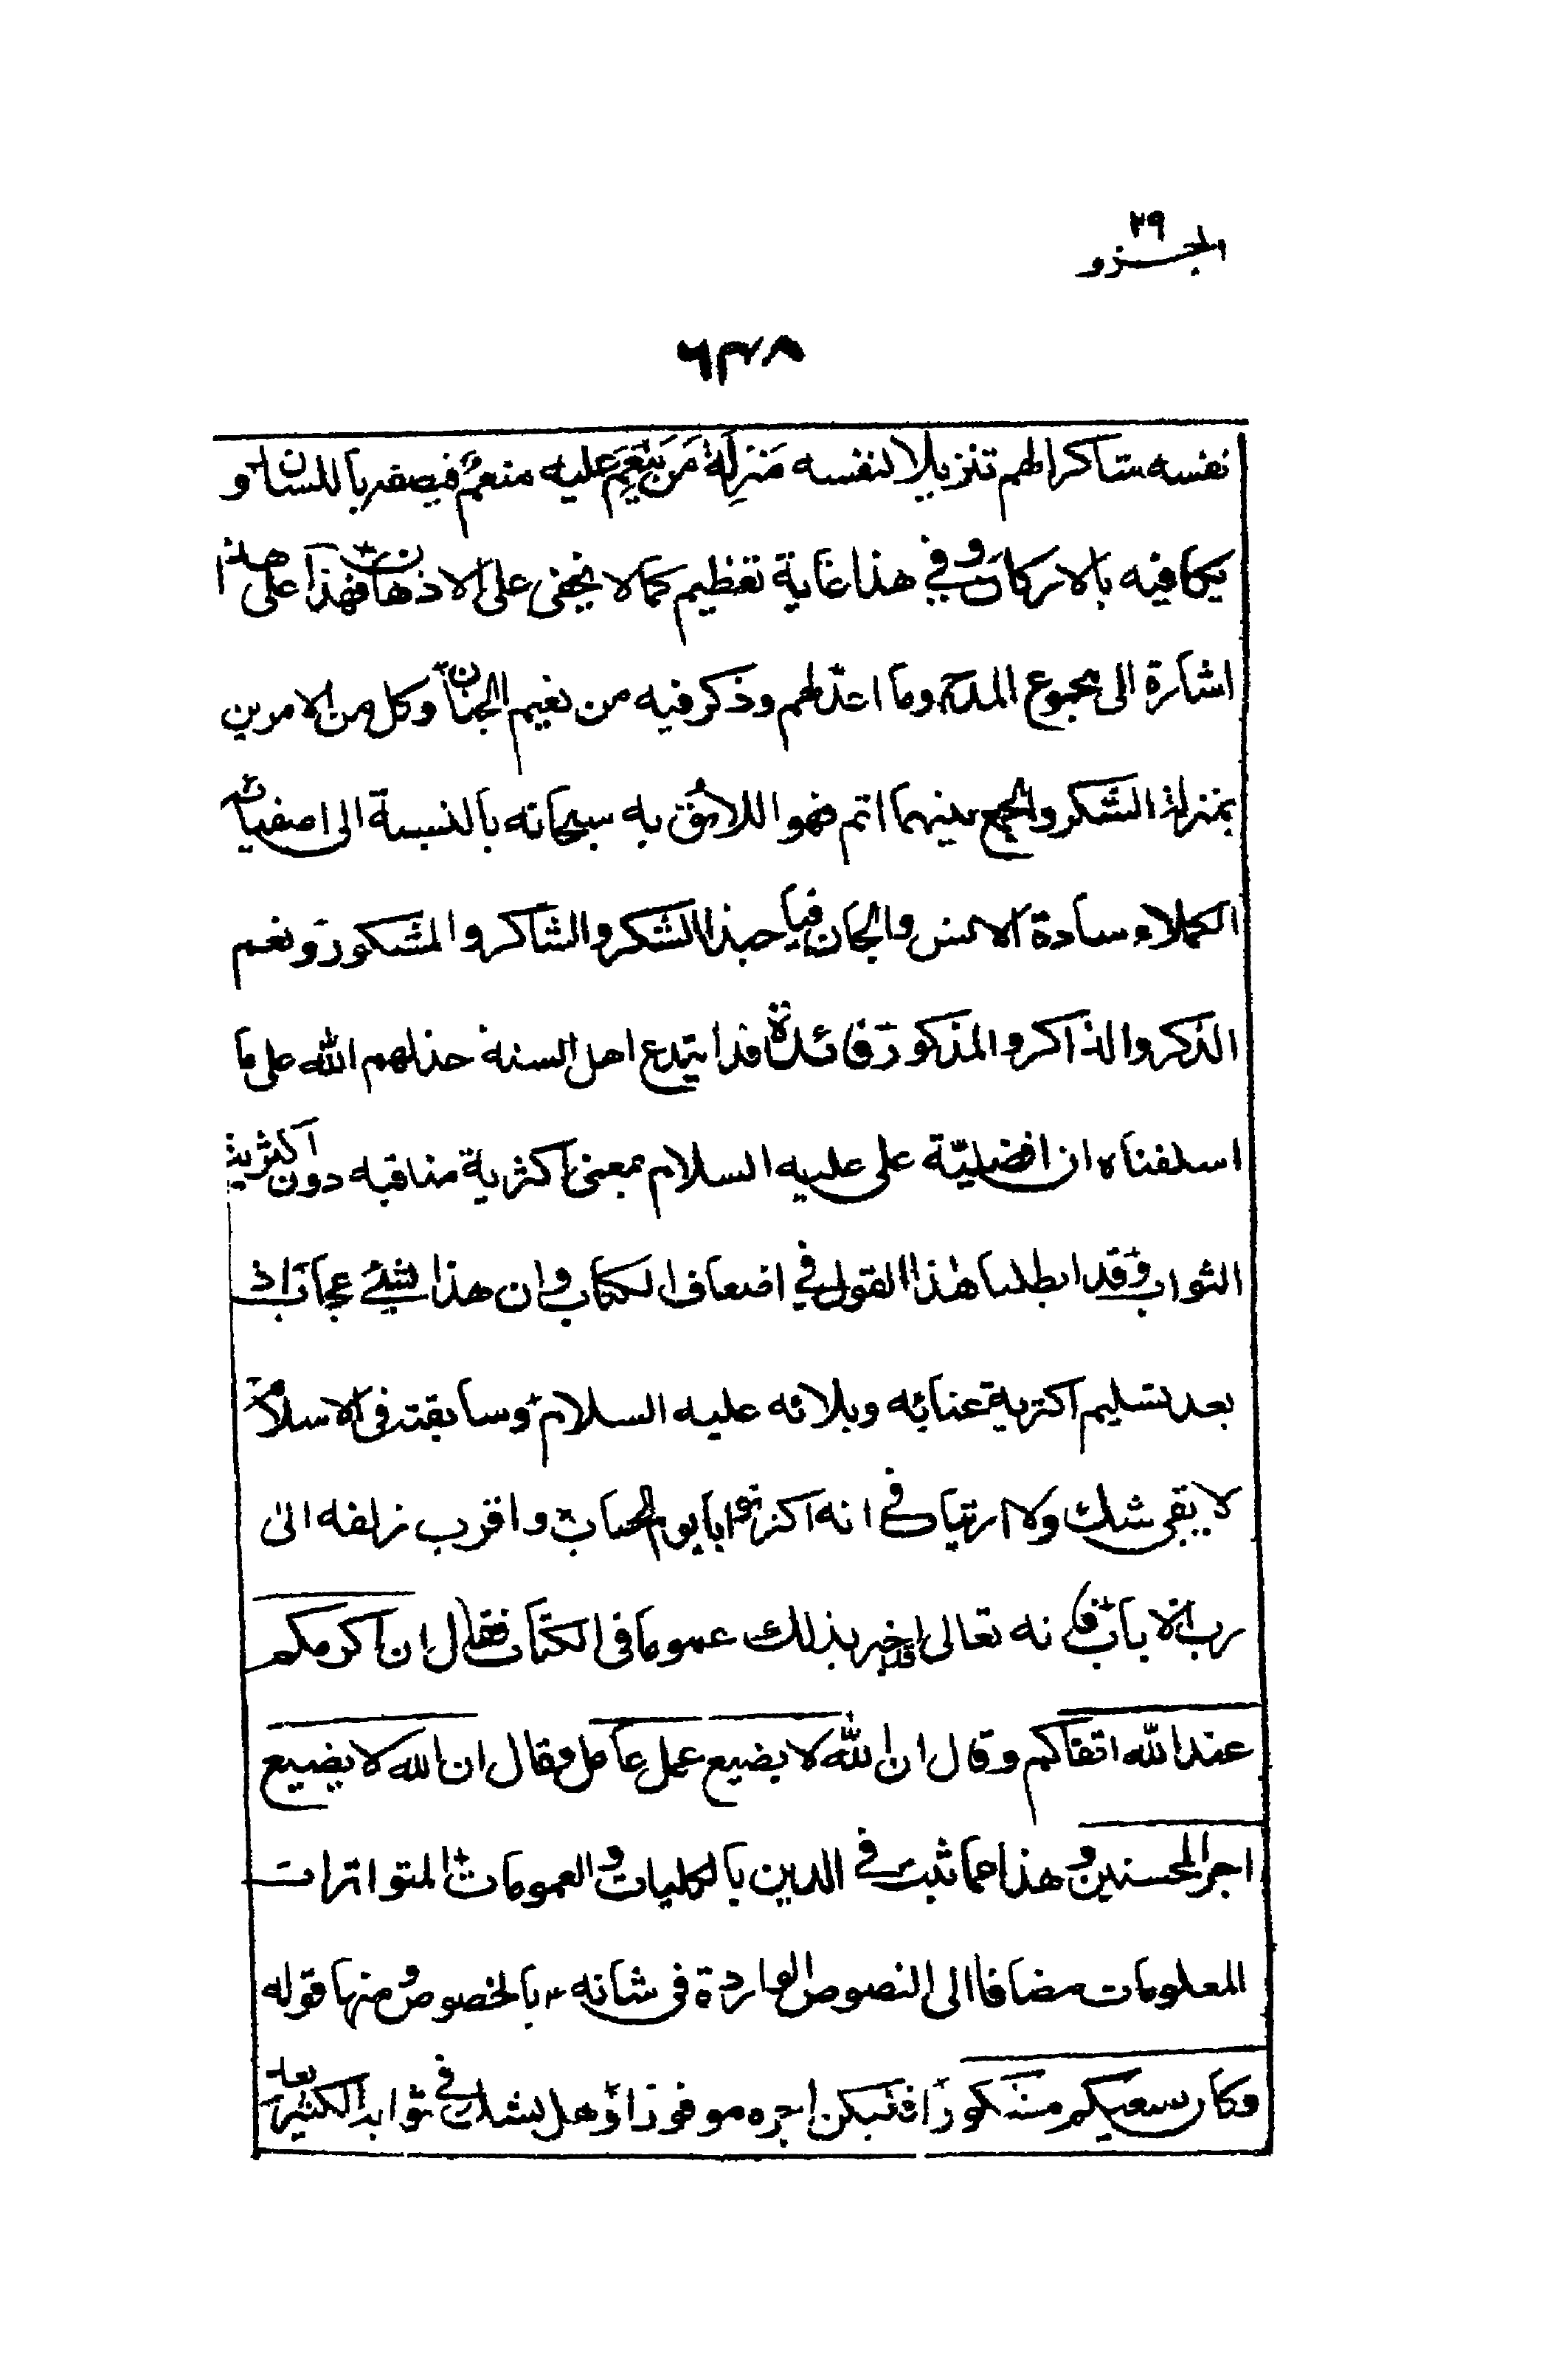 الجزو ٢٩
٦٣٨
نفسه شاكرا لهم تنزيلا لنفسه منزلة من ينعم عليه منعم فيصفه باللسان و
يكافيه بالاركان وفي هذا غاية تعظيم كما لا يخفى على الاذهان فهذا على هذا
اشارة الى مجموع المدح وما اعد لهم وذكر فيه من نعيم الجنان وكل من الامرين
بمنزلة الشكر والجمع بينهما اتم فهو اللائق به سبحانه بالنسبة الى اصفيائه
الكملاء سادة الانس والجان فيا حبذا الشكر والشاكر والمشكور ونعم
الذكر والذاكر والمذكور فائدة قد ابتدع اهل السنة خذلهم الله على ما
اسلفناه ان افضليّة على عليه السلام بمعنى اكثرية مناقبه دون اكثرية
الثواب وقد ابطلنا هذا القول في اضعاف الكتاب وان هذا لشئ عجاب اذ
بعد تسليم اكثرية عنائه وبلائه عليه السلام وسابقته في الاسلام
لا يبقى شك ولا ارتياب في انه اكثر ثوابا يوم الحساب واقرب زلفه الى
رب الارباب فانه تعالى قد اخبر بذلك عموما في الكتاب فقال ان اكرمكم
عند الله اتقاكم وقال ان الله لا يضيع عمل عامل وقال ان الله لا يضيع
اجر المحسنين وهذا مما ثبت في الدين بالكليات والعمومات المتواترات
المعلومات مضافا الى النصوص الواردة في شانه بالخصوص ومنها قوله
وكان سعيكم مشكورا فليكن اجره موفورا وهل يشك في ثوابه الكثير بعد